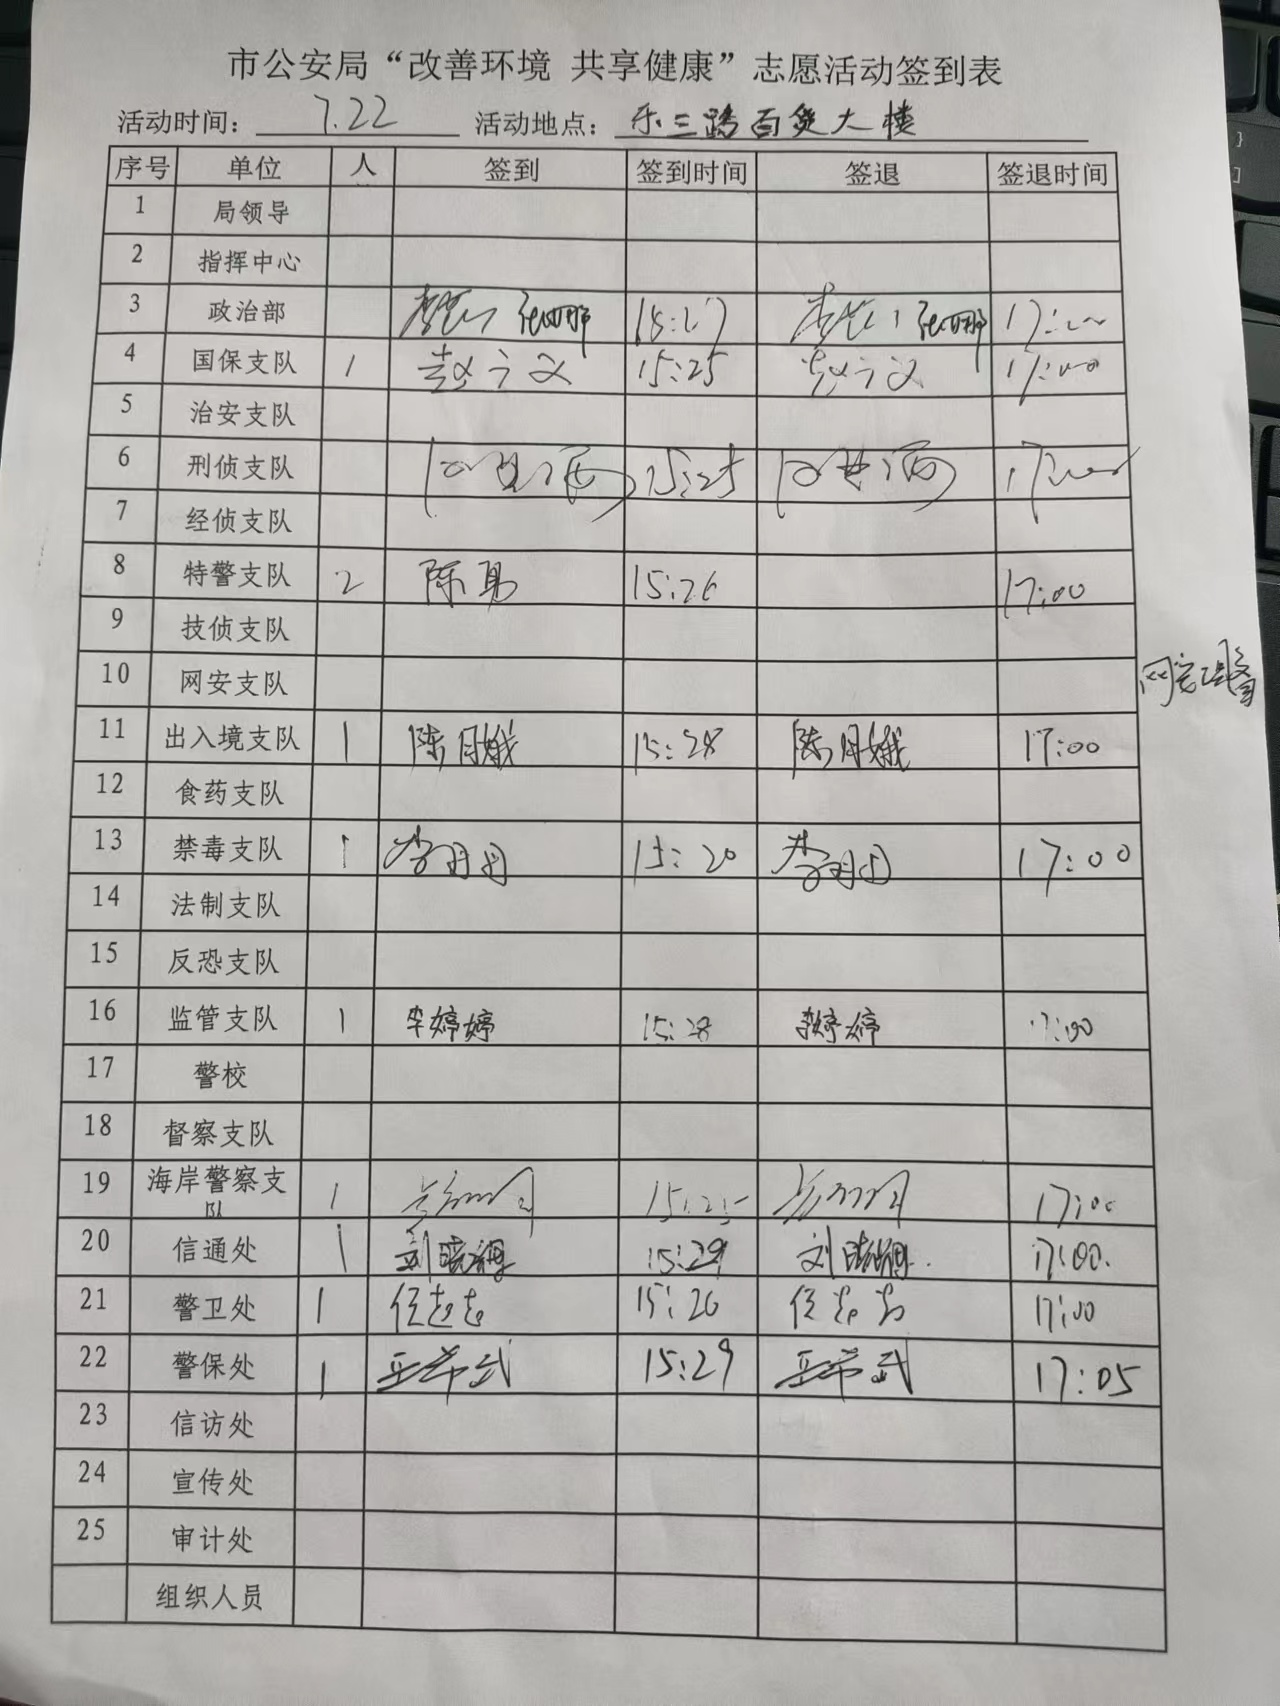 市公安局“改善环境 共享健康”志愿活动签到表
活动时间： 7.22 活动地点： 乐三路百货大楼
序号 单位 人 签到 签到时间 签退 签退时间
1 局领导
2 指挥中心
3 政治部
4 国保支队 1 赵立义 15:25 赵立义 17:00
5 治安支队
6 刑侦支队 15:25
7 经侦支队
8 特警支队 2 陈勇 15:26 17:00
9 技侦支队
10 网安支队
11 出入境支队 1 陈月娥 15:28 陈月娥 17:00
12 食药支队
13 禁毒支队 1 李丹丹 15:20 李丹丹 17:00
14 法制支队
15 反恐支队
16 监管支队 1 李婷婷 15:28 李婷婷 17:00
17 警校
18 督察支队
19 海岸警察支队 1 15:25 17:00
20 信通处 1 15:29 17:00.
21 警卫处 1 15:26 17:00
22 警保处 1 15:29 17:05
23 信访处
24 宣传处
25 审计处
组织人员